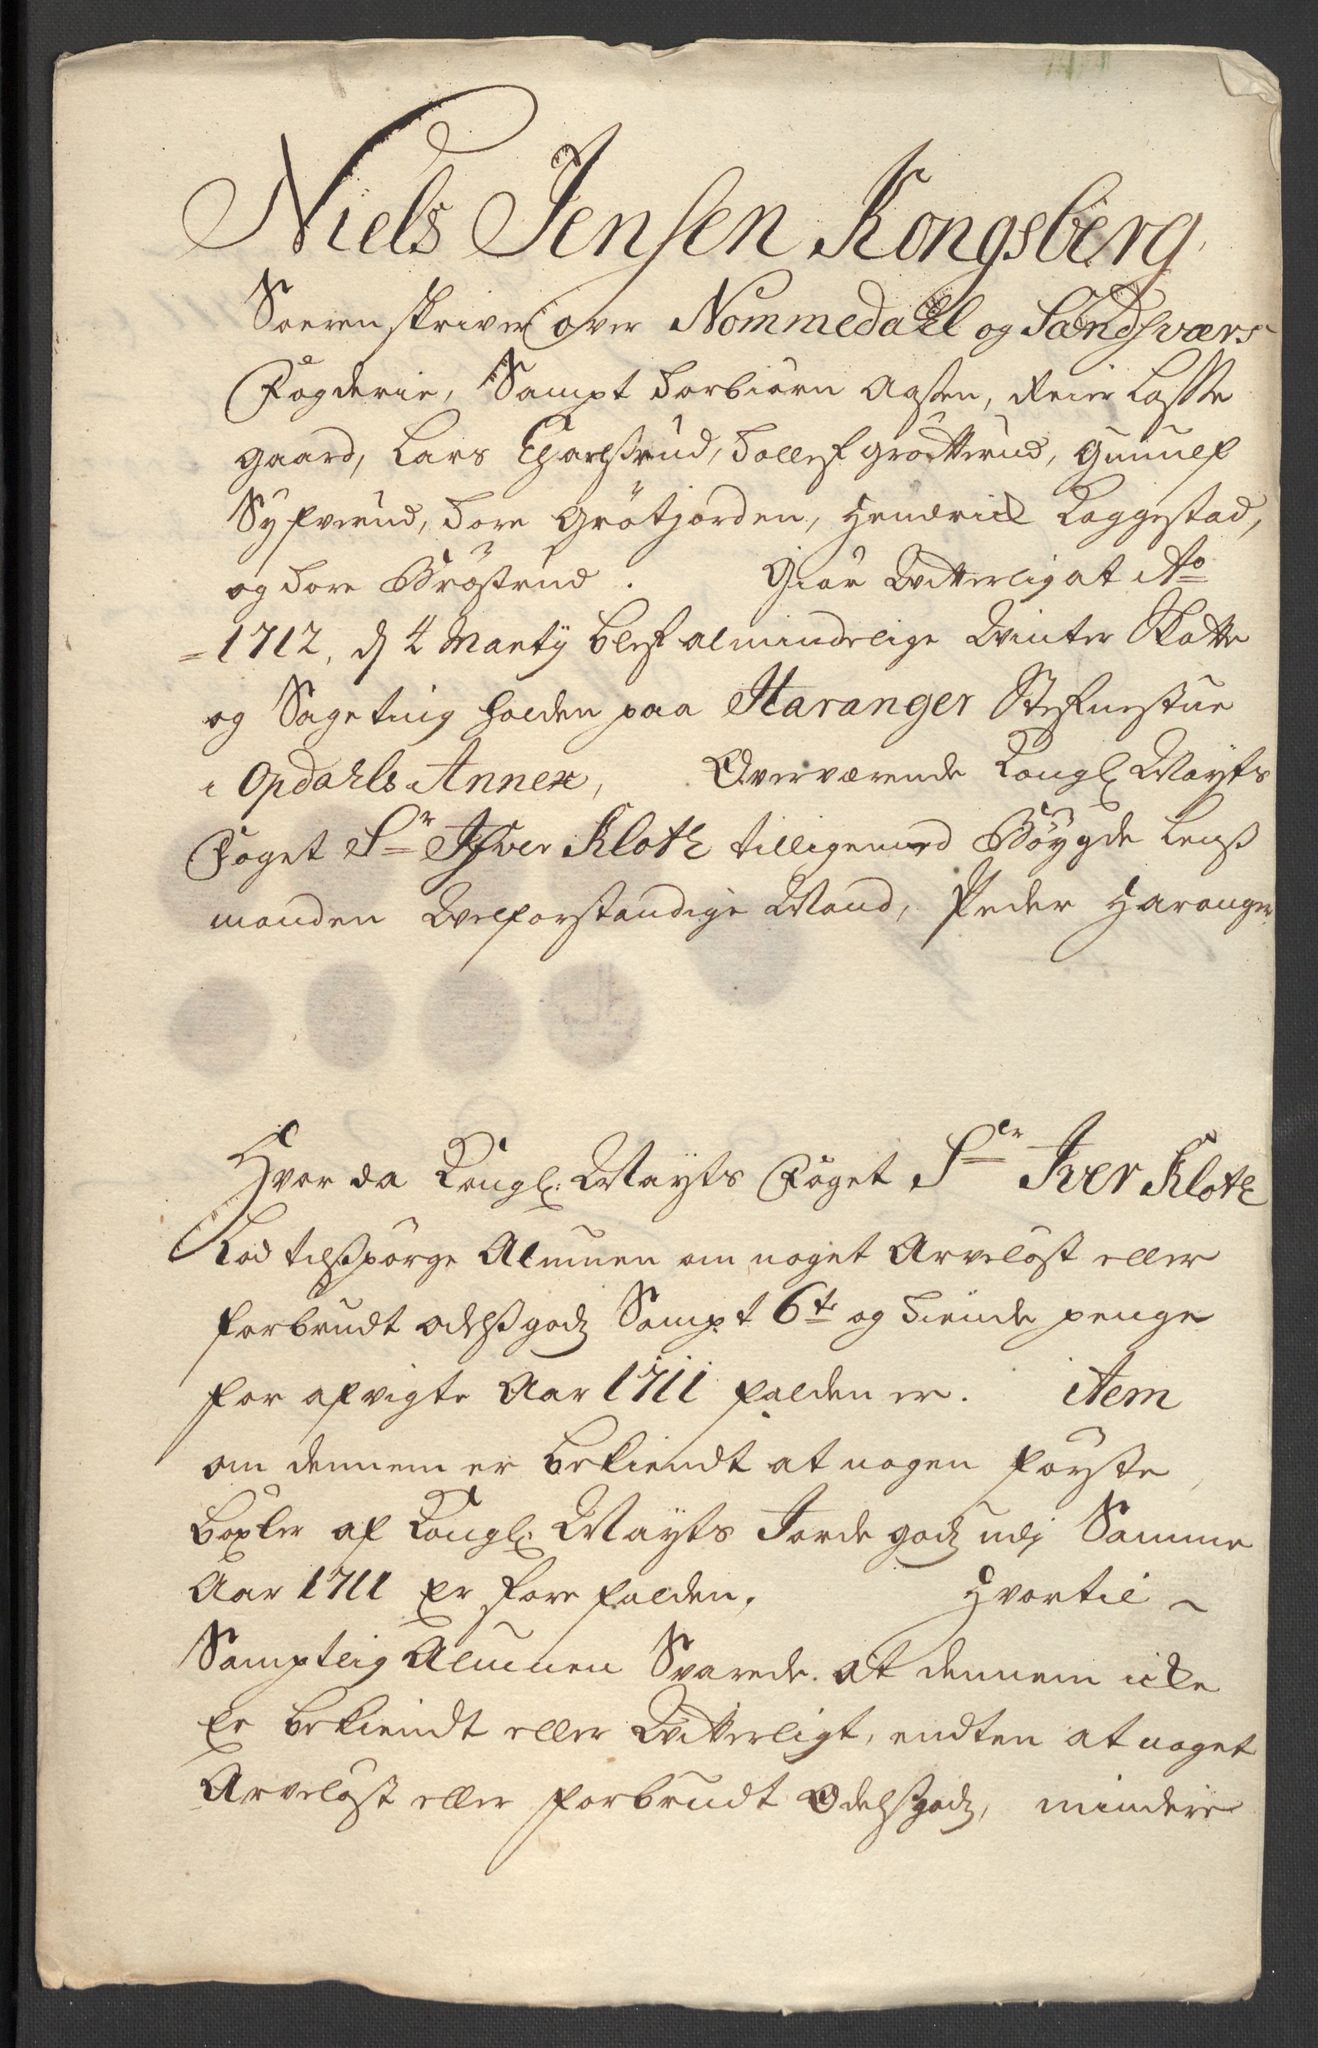 Niels Jensen Kongsberg,
Soerenskriver over Nommedahl og Sandsværs
Fogderie, Sampt Torbiørn Aasen, Reier Lasse
gaard, Lars Tollef Grøtterud, Gunulf
Syfverud, Tore Grøtjorden, Hendrick Laggestad,
og Tore Brøstrud. Giør Witterlig at Ao
1712, d 4 Marty blef almindelige Winter Skatte
og Sageting holden paa Haranger Stefnestue
i Opdahls Annex, Overværende Kongl Mayts
Foget Sr Ifver Klotz tilligemed Bøygde Lenß
manden Welforstandige Mand, Peder Haranger
Hvor da Kongl: Mayts Foget Sr Iver Klotz
Lod tilßpørge Almuen om noget Arveløst eller
forbrudt odelßgodz Sampt 6te og tiende penge
for afvigte Aar 1711 falden er. item
om dennem er bekiendt at nogen første
böxler af Kongl: Mayts Jordegodz udj Samme
Aar 1711 Er fore falden, Hvortil
Samptlig Almuen Svarede. at dennem icke
Er bekiendt eller Witterligt, endten at noget
Arveløst eller forbrudt Odelßgodz, mindre